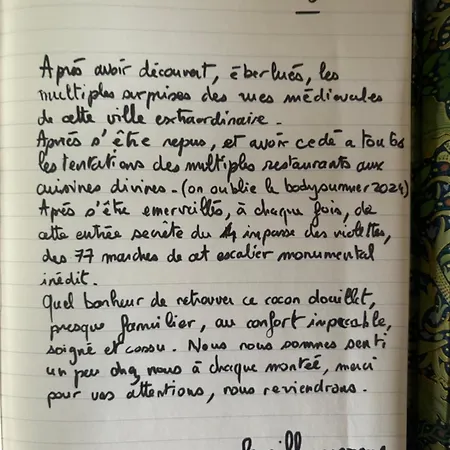 Après avoir découvert, éberlués, les
multiples surprises des rues médiévales
de cette ville extraordinaire.
Après s'être repus, et avoir cedé a toutes
les tentations des multiples restaurants aux
cuisines divines - (on oublie le bodysummer 2024)
Après s'être emerveillés, à chaque fois, de
cette entrée secrète du 4 impasse des violettes,
des 77 marches de cet escalier monumental
inédit.
Quel bonheur de retrouver ce cocon douillet,
presque familier, au confort impeccable,
soigné et cossu. Nous nous sommes senti
un peu chez nous à chaque montée, merci
pour vos attentions, nous reviendrons.